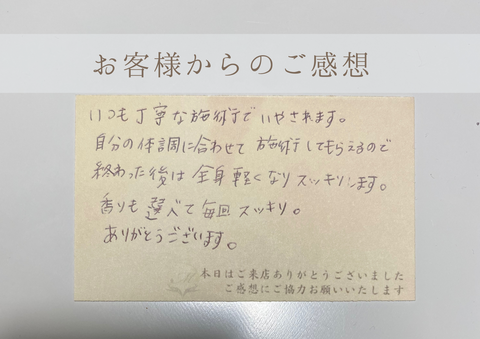 お客様からのご感想
いつも丁寧な施術でいやされます。
自分の体調に合わせて 施術してもらえるので
終わった後は 全身軽くなりスッキリします。
香りも 選べて 毎回 スッキリ。
ありがとうございます。
本日はご来店ありがとうございました
ご感想にご協力お願いいたします